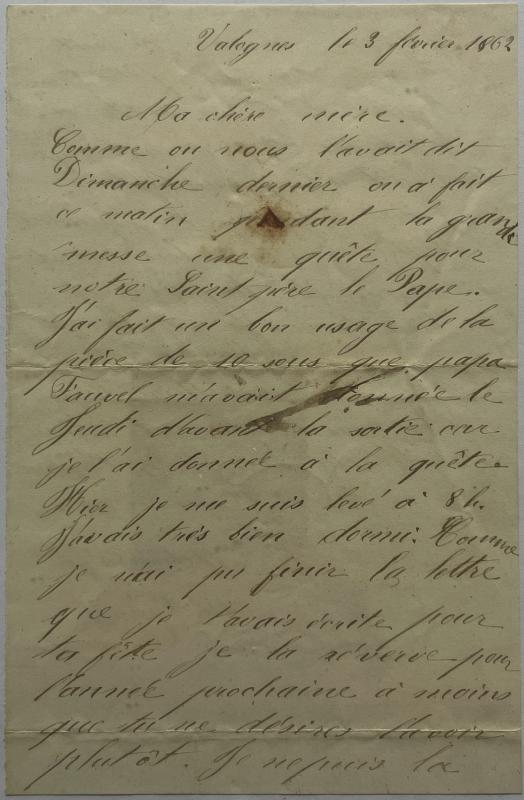 Valognes le 3 février 1862
Ma chère mère.
Comme on nous l'avait dit
Dimanche dernier on a fait
ce matin pendant la grande
messe une quête pour
notre Saint père le Pape.
J'ai fait un bon usage de la
pièce de 10 sous que papa
Fauvel m'avait donnée le
Jeudi d'avant la sortie car
je l'ai donnée à la quête.
Hier je me suis levé à 8 h.
J'avais très bien dormi. Comme
je n'ai pu finir la lettre
que je t'avais écrite pour
ta fête je la réverve pour
l'année prochaine à moins
que tu ne désires l'avoir
plutôt. Je ne puis la